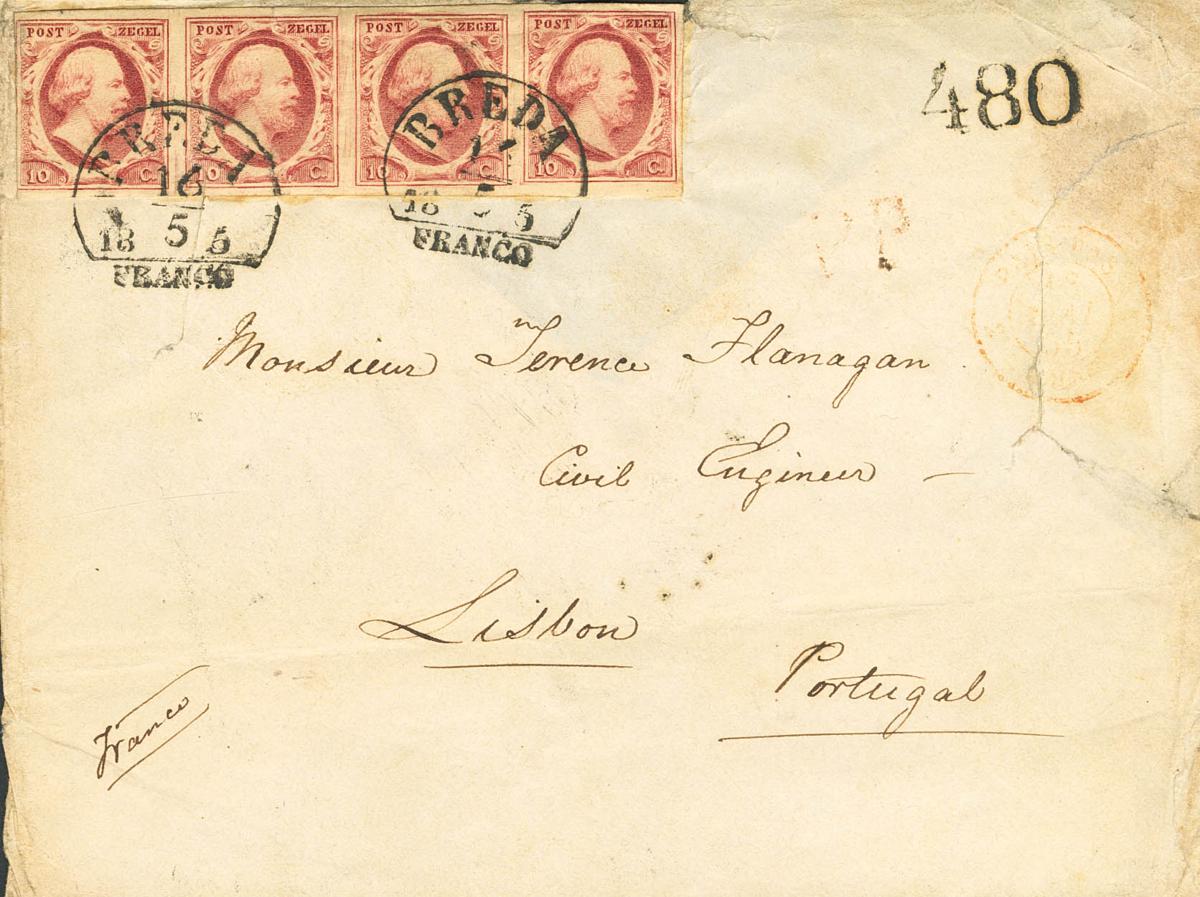 POST ZEGEL POST ZEGEL POST ZEGEL POST ZEGEL
10 C. 10 C. 10 C. 10 C.
BREDA
16
18 5 5
FRANCO
BREDA
18 5 5
FRANCO
480
Monsieur Terence Flanagan
Civil Engineer –
Lisbon
Portugal
Franco